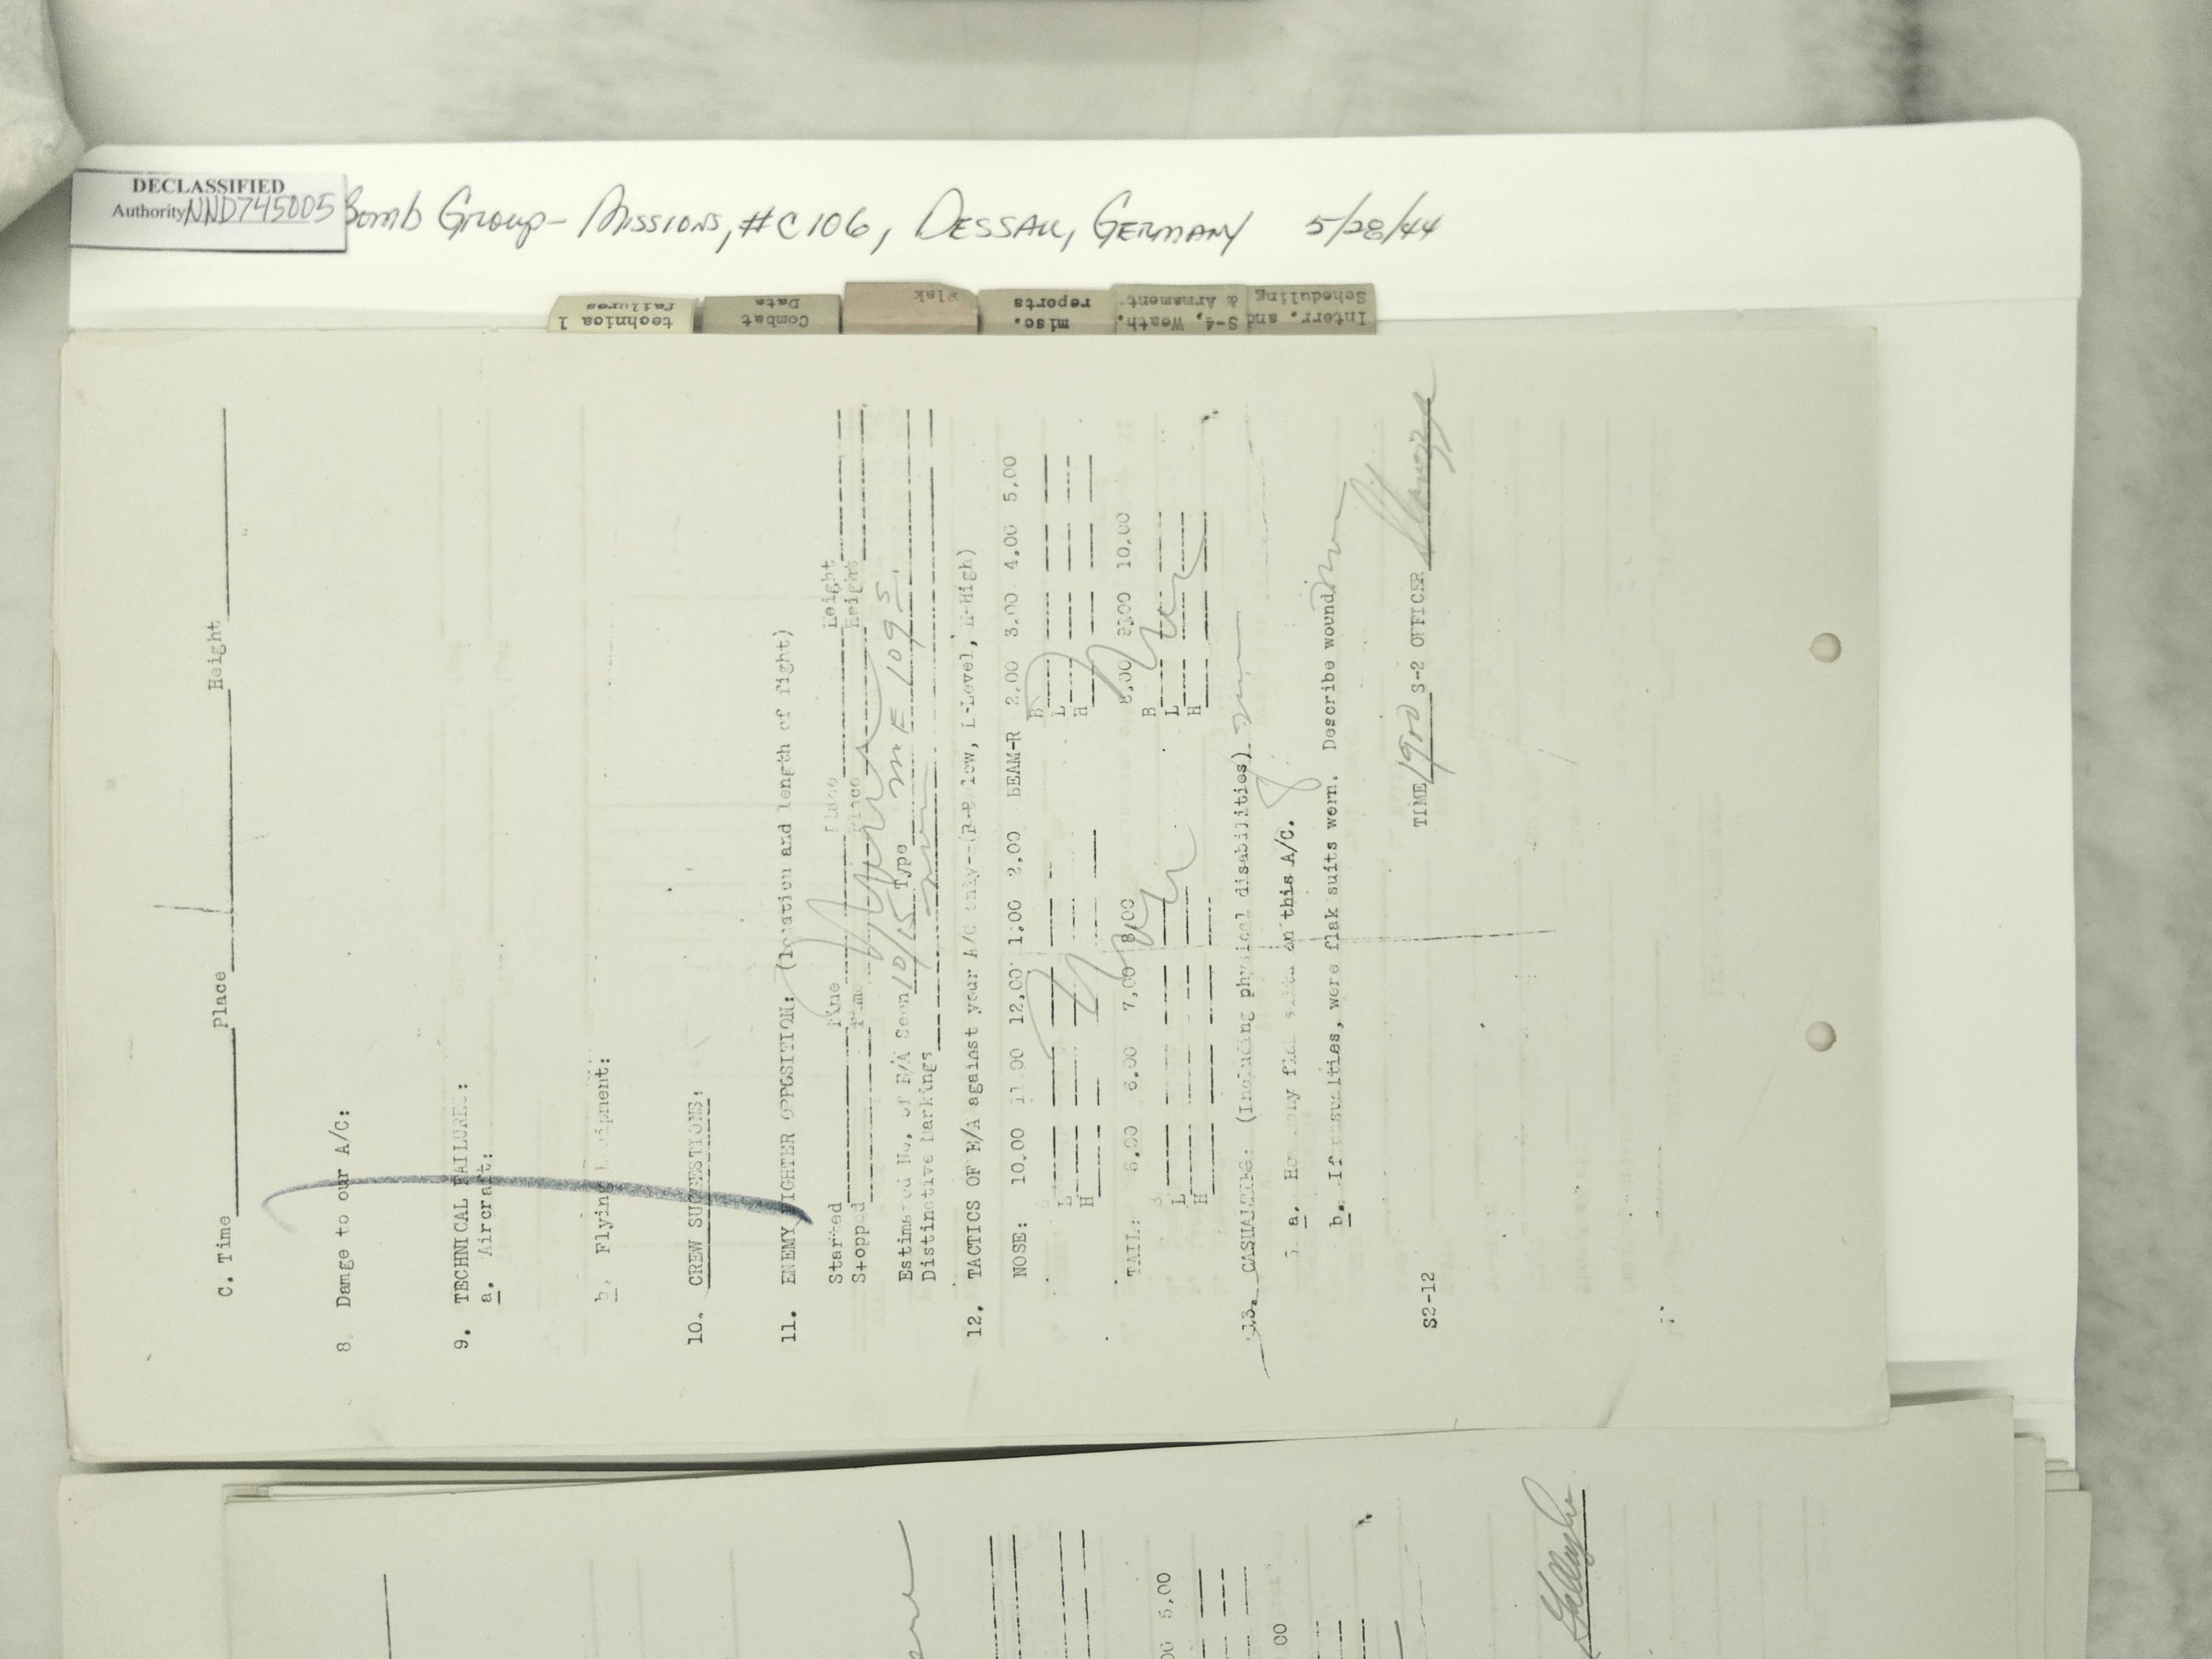 DECLASSIFIED
Authority NND745005
Bomb Group - Missions, #C106, DESSAU, GERMANY 5/28/44
technical failures
Combat Data
Flak
misc. reports
S-4, Weath. & Armament
Interr. and Scheduling
C. Time Place Height
8. Damage to our A/C:
9. TECHNICAL FAILURES:
a. Aircraft:
b. Flying Equipment:
10. CREW SUGGESTIONS:
11. ENEMY FIGHTER OPPOSITION: (location and length of fight)
Started Time Place Height
Stopped Time Place Height
Estimated No. of E/A Seen 10/15 Type ME 109s
Distinctive Markings
12. TACTICS OF E/A against your A/C only--(B-Below, L-Level, H-High)
NOSE: 10.00 11.00 12.00 1.00 2.00 BEAM-R 2.00 3.00 4.00 5.00
B
L L
H H
TAIL: 5.00 6.00 7.00 8.00 8.00 9.00 10.00
B B
L L
H H
13. CASUALTIES: (Including physical disabilities)
a. How many flak suits on this A/C. 8
b. If casualties, were flak suits worn. Describe wound
TIME 1900 S-2 OFFICER
S2-12
5.00
00
Gallagher